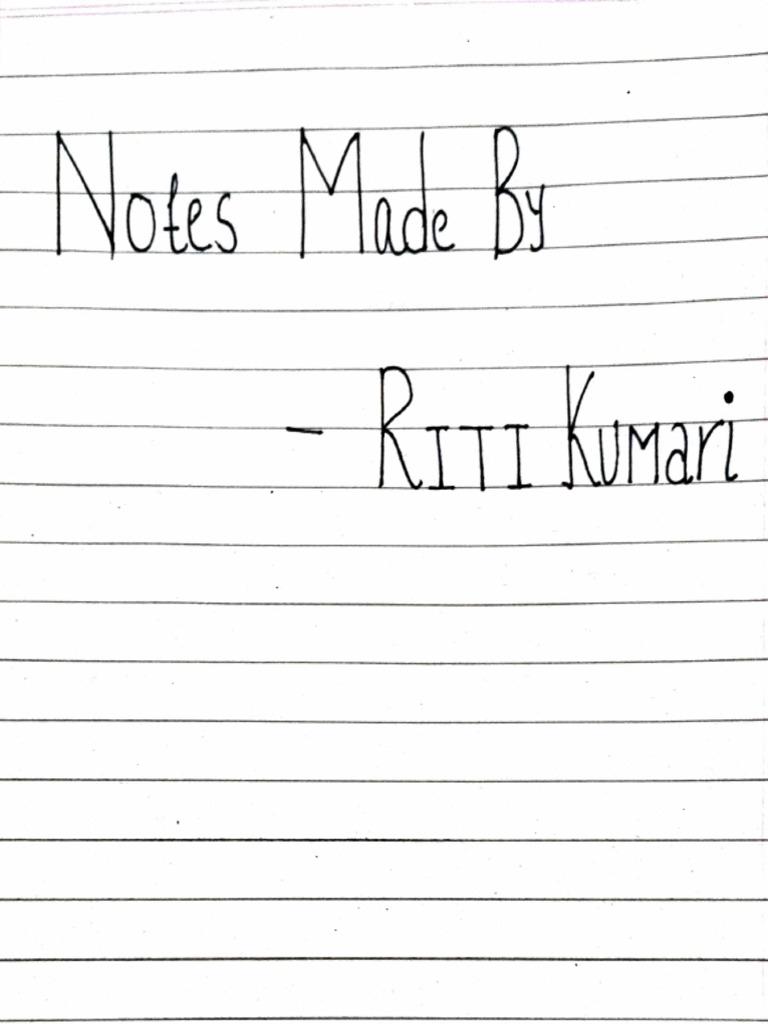 Notes Made By
- RITI Kumari